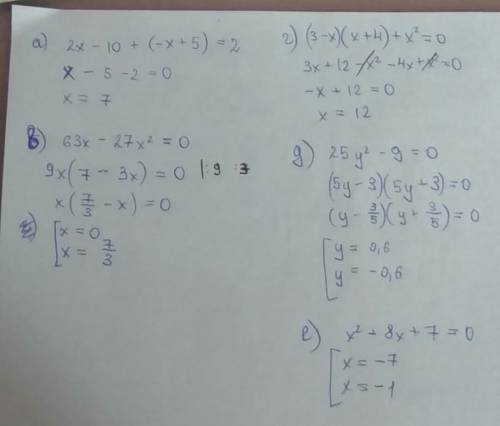 а) 2x - 10 + (-x + 5) = 2
x - 5 - 2 = 0
x = 7
в) 63x - 27x² = 0
9x(7 - 3x) = 0 |:9 :3
x(7/3 - x) = 0
[x = 0
x = 7/3
г) (3-x)(x+4) + x² = 0
3x + 12 - x² - 4x + x² = 0
-x + 12 = 0
x = 12
д) 25y² - 9 = 0
(5y - 3)(5y + 3) = 0
(y - 3/5)(y + 3/5) = 0
[y = 0,6
y = -0,6
е) x² + 8x + 7 = 0
[x = -7
x = -1